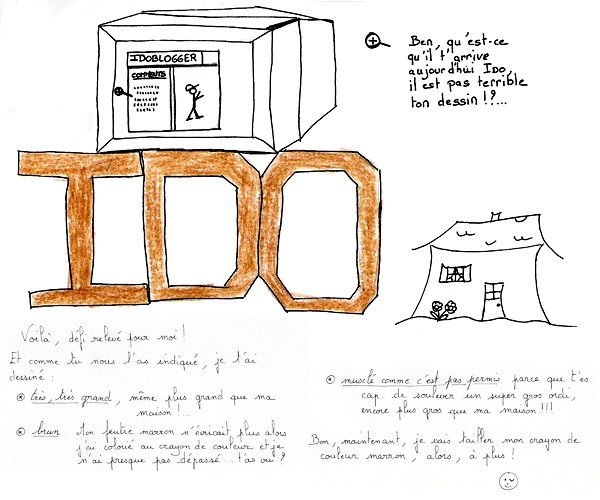 IDOBLOGGER
COMMENTS
Ben, qu'est-ce
qu'il t'arrive
aujourd'hui Ido,
il est pas terrible
ton dessin !?...
IDO
Voilà, défi relevé pour moi !
Et comme tu nous l'as indiqué, je t'ai
dessiné :
très, très grand, même plus grand que ma
maison !...
brun. Mon feutre marron n'écrivait plus alors
j'ai colorié au crayon de couleur et je
n'ai presque pas dépassé... t'as vu ?
musclé comme c'est pas permis parce que t'es
cap. de soulever un super gros ordi,
encore plus gros que ma maison !!!
Bon, maintenant, je vais tailler mon crayon de
couleur marron, alors, à plus !